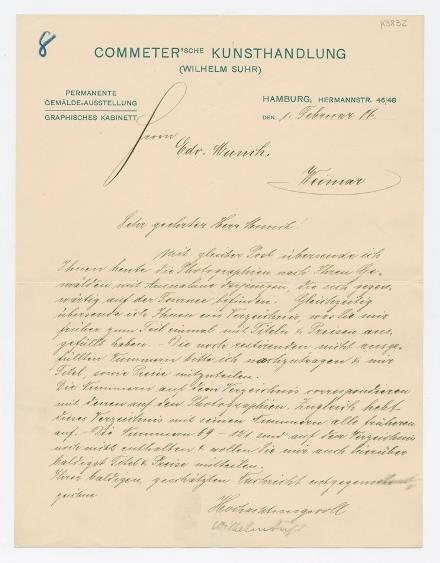 8
K3832
COMMETER'SCHE KUNSTHANDLUNG
(WILHELM SUHR)
PERMANENTE
GEMÄLDE-AUSSTELLUNG
GRAPHISCHES KABINETT
HAMBURG, HERMANNSTR. 46/48
DEN 1. Februar 06.
Herrn
Edv. Munch.
Weimar
Sehr geehrter Herr Munch!
Mit gleicher Post übersende ich
Ihnen heute die Photographien nach Ihren Ge-
mälden mit Ausnahme derjenigen, die sich gegen-
wärtig auf der Tournee befinden. Gleichzeitig
übersende ich Ihnen ein Verzeichnis, das Sie mir
früher zum Teil einmal mit Titeln & Preisen aus-
gefüllt haben. - Die noch restierenden nicht ausge-
füllten Nummern bitte ich nachzutragen & mir
Titel, sowie Preise mitzuteilen.
Die Nummern auf dem Verzeichnis correspondieren
mit denen auf den Photographien. Zugleich hebt
dieses Verzeichnis mit seinen Nummern alle früheren
auf. - Die Nummern 69 - 121 sind auf dem Verzeichnis
noch nicht enthalten & wollen Sie mir auch hierüber
baldigst Titel & Preise mitteilen.
Ihrer baldigen, geschätzten Nachricht entgegensehend
zeichne
Hochachtungsvoll
Wilhelm Suhr